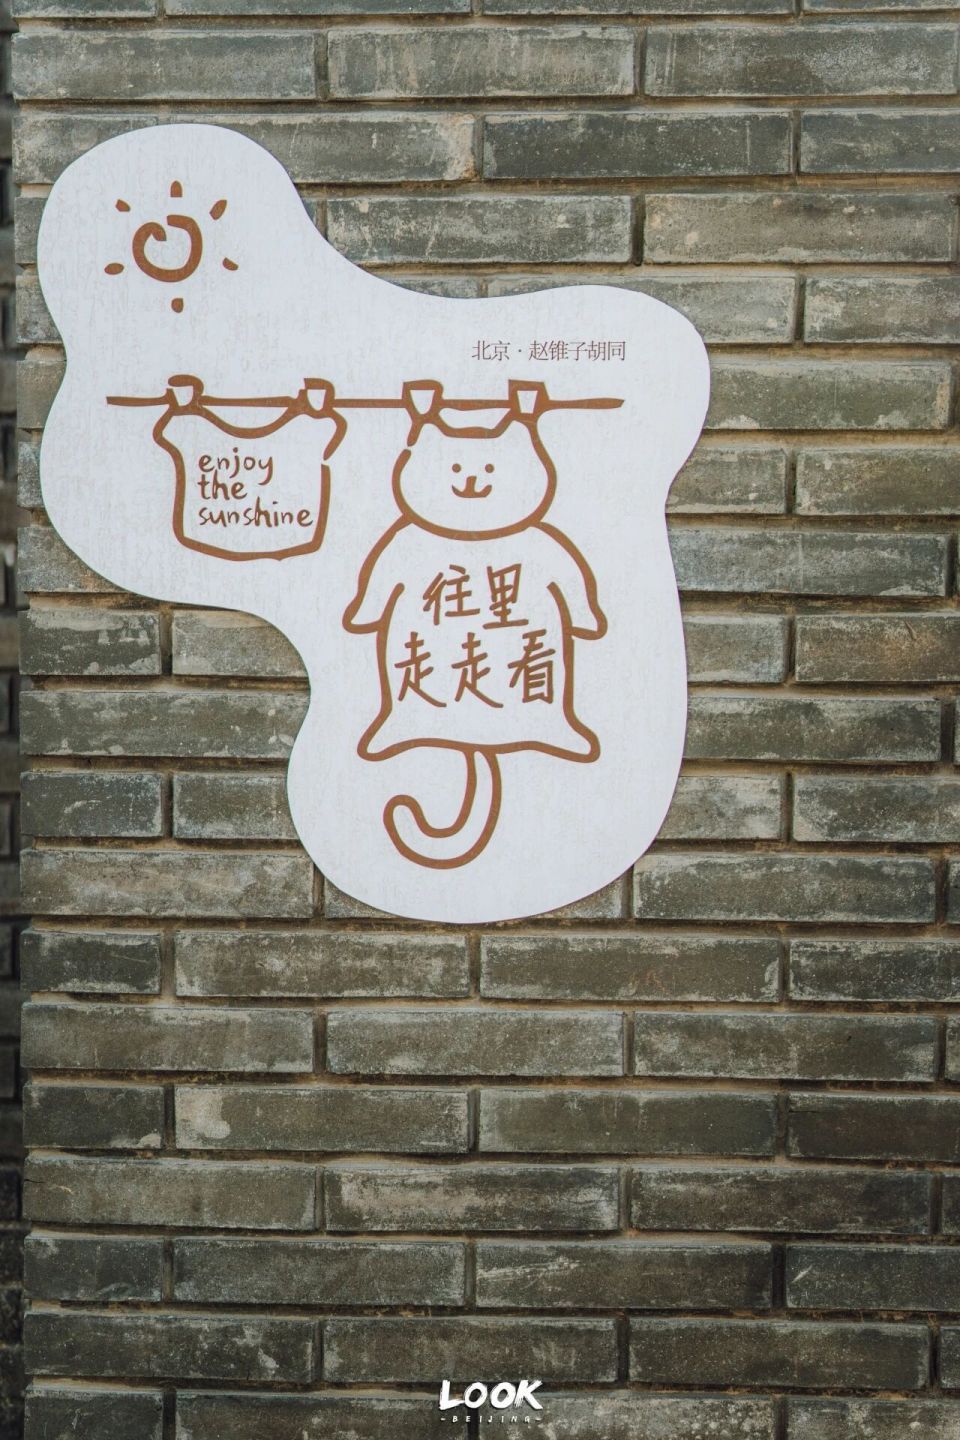 北京·赵锥子胡同
enjoy
the
sunshine
往里
走走看
LOOK
~BEIJING~